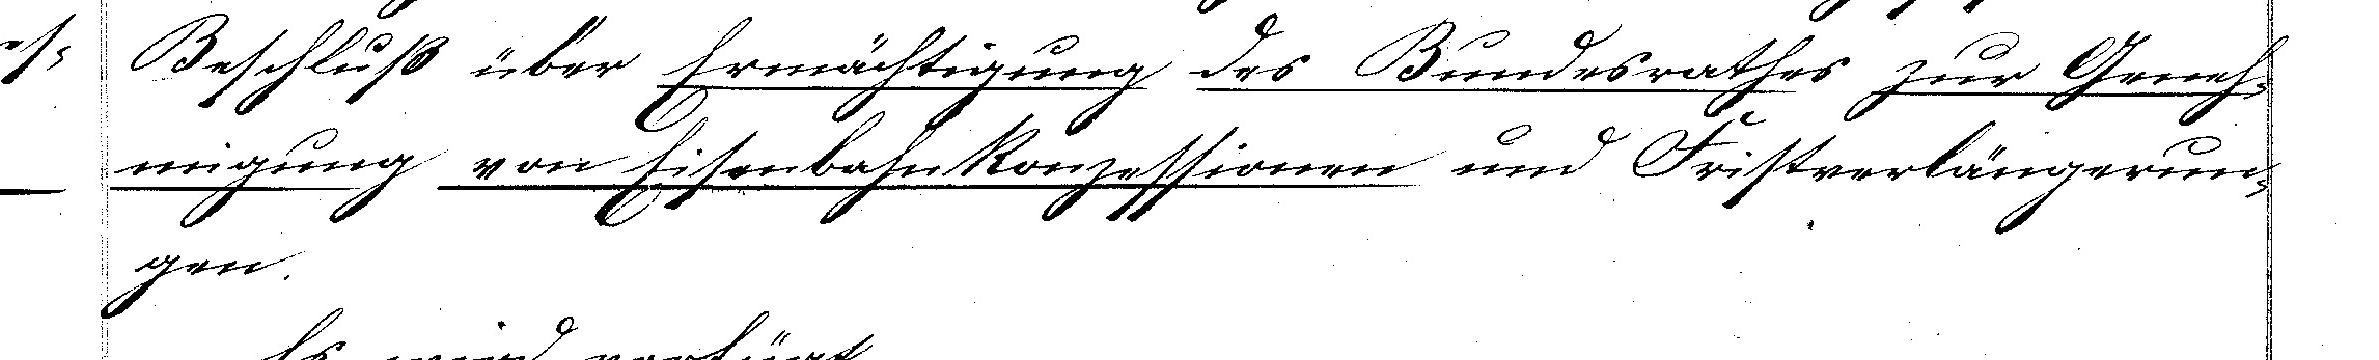 Beschluß über Ermächtigung des Bundesrathes zur Geneh-
migung von Eisenbahnkonzessionen und Fristverlängerun-
gen.
Es wird verfügt